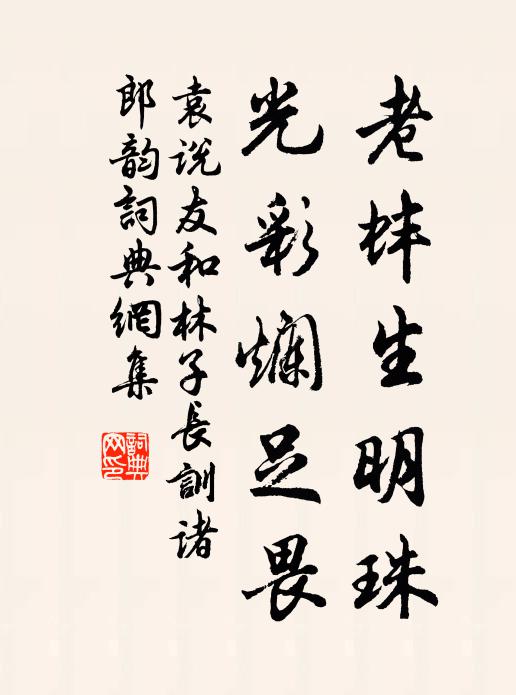 老蚌生明珠
光彩爛足畏
袁説友和林子長訓诸
郎韵詞典網集
詞典网印